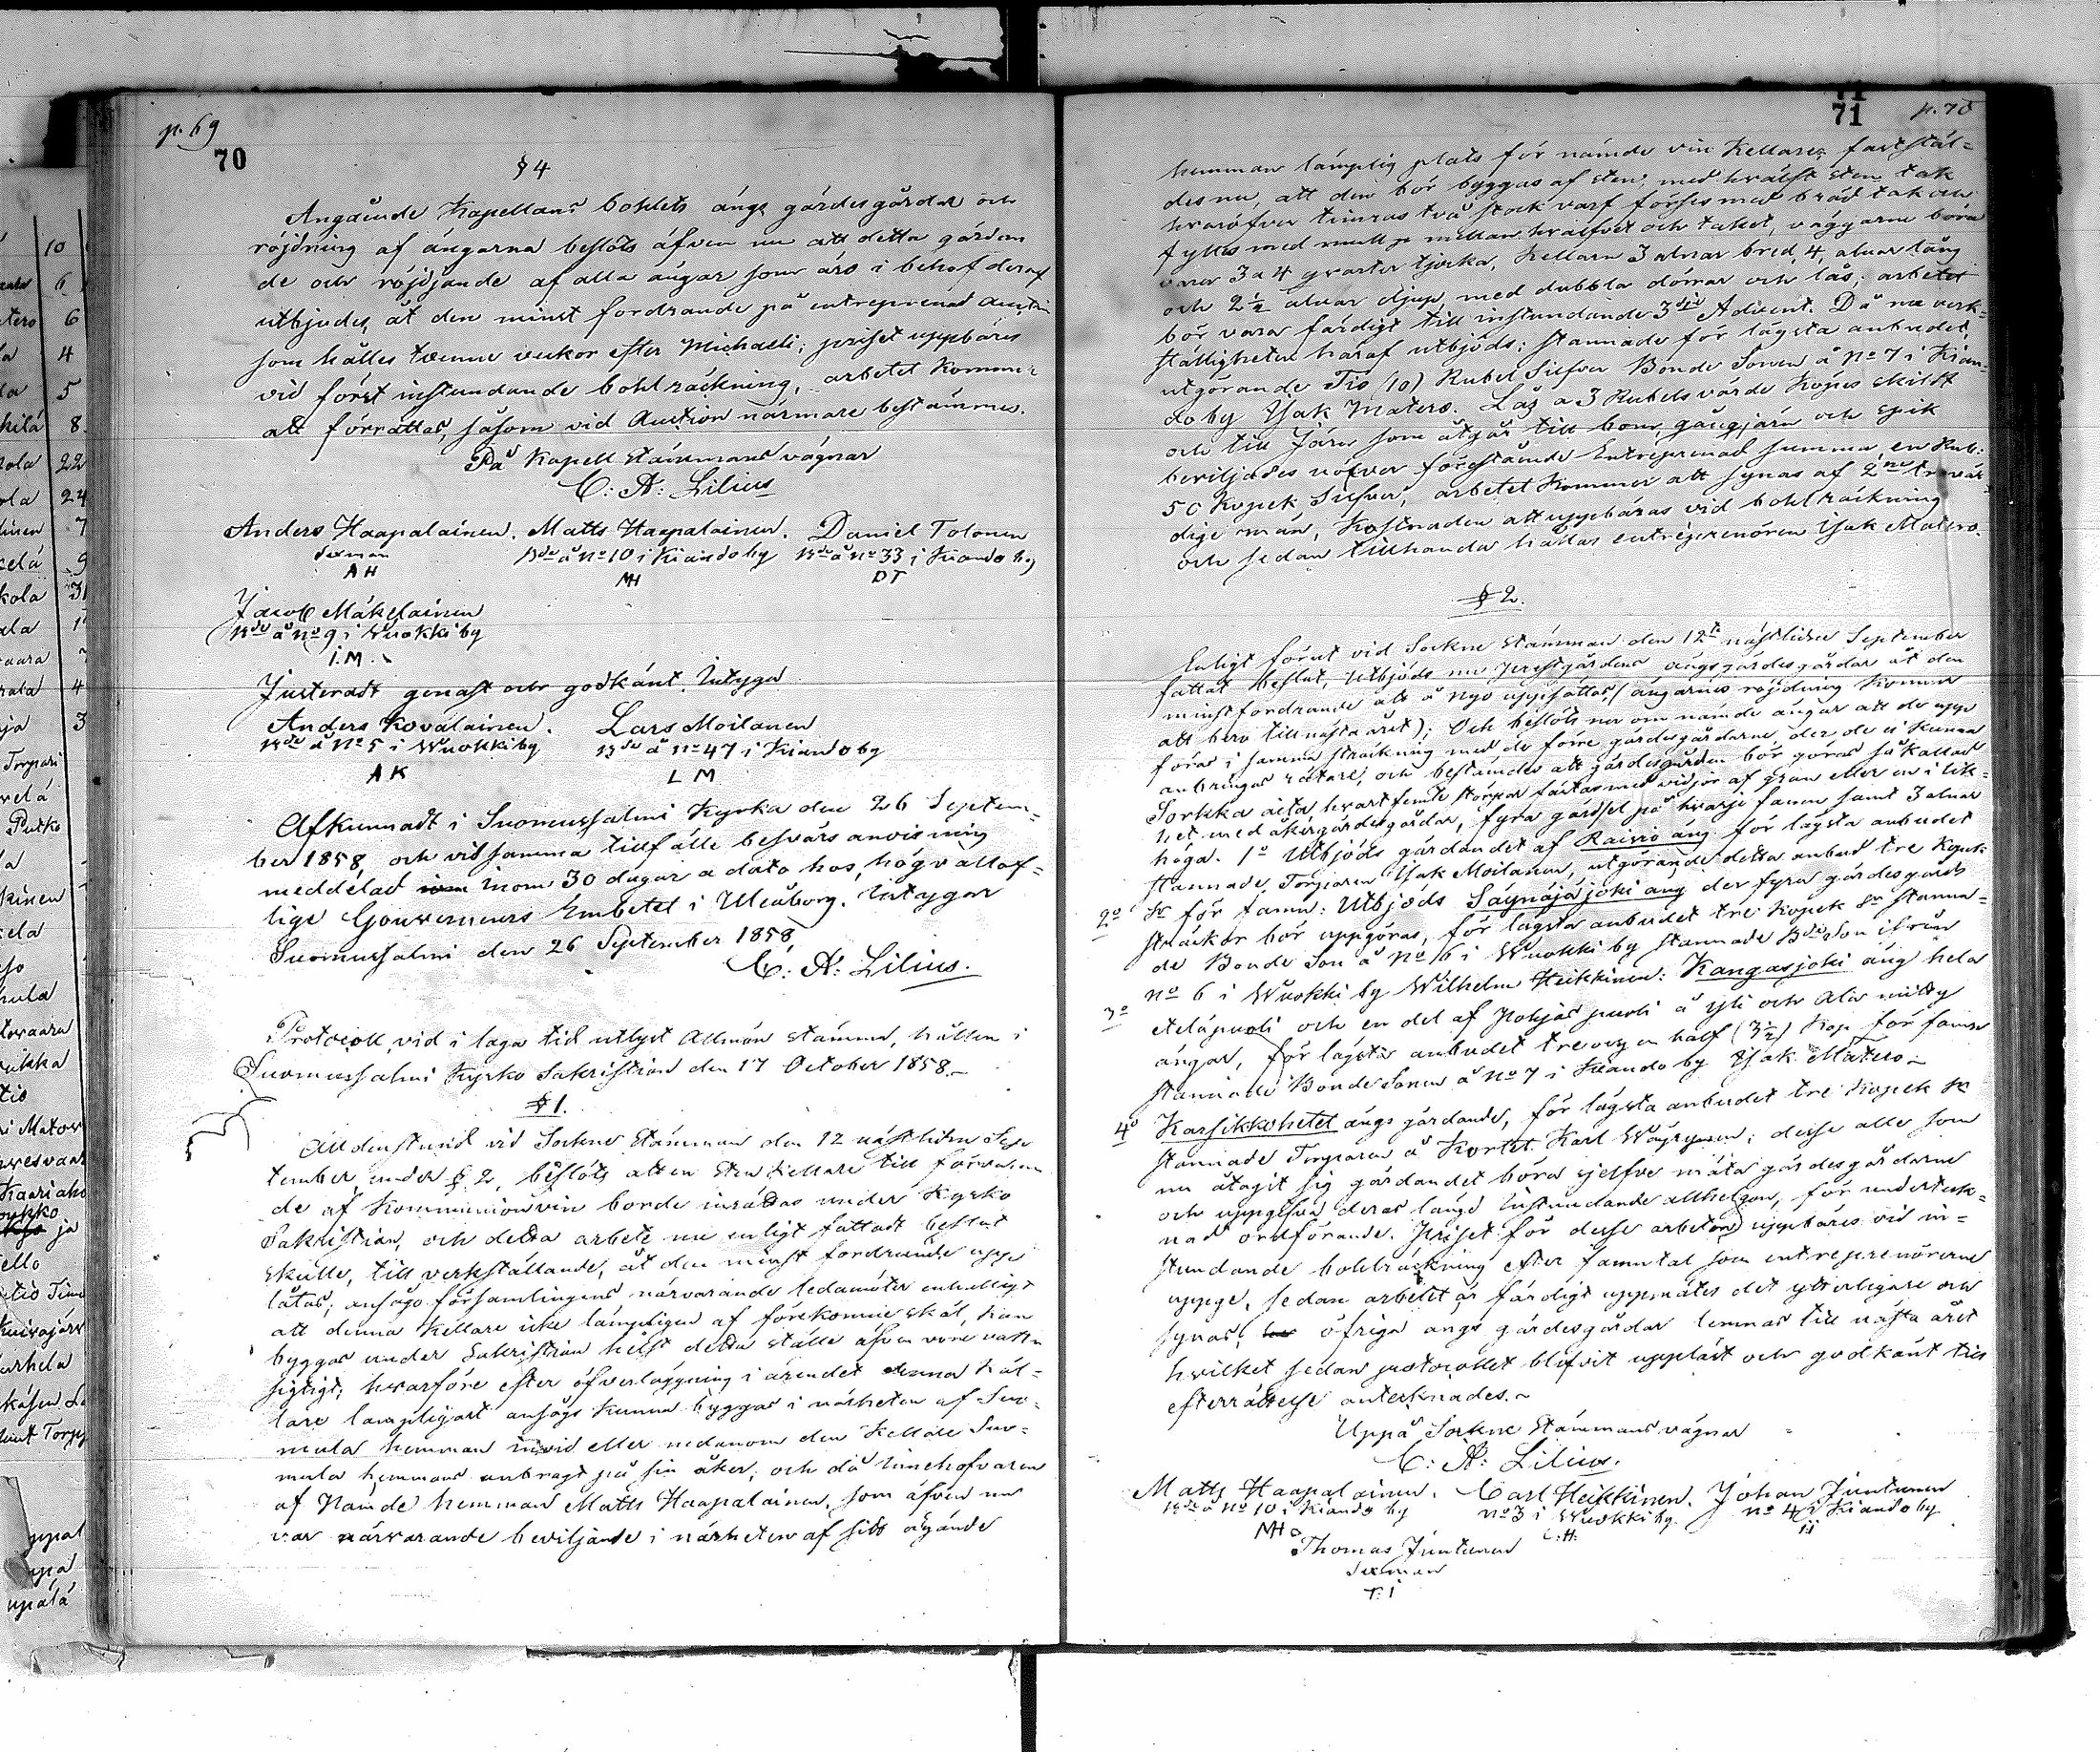 p. 69
70
§ 4
Angående Kapellans bohlets ängs gärdesgårdar och
röjdning af ängarna beslöts äfven nu att detta gärdan
de och röjdjande af alla ängar som äro i behof deraf
utbjudes, åt den minst fordrande på entreprenad auction
som hålles tvenne veckor efter Michaeli; priset uppbäres
vid först instundande bohlräckning, arbetet kommer
att förrättas, såsom vid Auction närmare bestämmes.
På Kapell Stämmans vägnar
C: A: Lilius
Anders Haapalainen. Matts Haapalainen. Daniel Tolonen
Sexman Bde å No 10 i Kiando by Bde å No 33 i Kiando by
A H MH D T
Jacob Mäkeläinen
Bde å No 9 i Wuokki by
I. M.
Justeradt genast och godkänt. Intyga
Anders Kovalainen. Lars Moilanen
Bde å No 5 i Wuokki by Bde å No 47 i Kiando by
A K L M
Afkunnadt i Suomussalmi Kyrka den 26 Septem=
ber 1858, och vid samma tillfälle besvärs anvisning
meddelad inom 30 dagar a dato hos, högvällof=
lige Gouverneurs Embetet i Uleåborg. Intygar
Suomussalmi den 26 September 1858,
C: A: Lilius.
Protocoll, vid i laga tid utlyst Allmän stämma, hållen i
Suomussalmi Kyrko Sakristian den 17 October 1858.-
§ 1.
Alldenstund vid Sockne Stämman den 12 nästlidne Sep
tember, under § 2, beslöts att en Sten kellare till förvaran
de af Kommunion vin borde inrättas under Kyrko
Sakristian, och detta arbete nu enligt fattadt beslut
skulle, till verkställande, åt den minst fordrande upp
låtas; ansågo församlingens närvarande ledamöter enhälligt
att denna Kellare icke lämpligen af förekomne skäl, kan
byggas under Sakristian hälst detta ställe äfven vore vatten
sigtigt; hvarföre efter öfverläggning i ärendet denna käl=
lare lämpligast ansågs kunna byggas i närheten af Suo=
mula hemman invid eller nedanom den Kellare Suo=
mula hemmans anbragt på sin åker; och då innehafvaren
af Nämde hemman Matts Haapalainen, som äfven nu
var närvarande beviljande i närheten af sitt ägande
71
p. 70
hemman lämplig plats för nämde vin Kellare, fastsstäl=
des nu, att den bör byggas af sten, med hvälft sten tak
hvaröfver timras två stock varf förses med bräd tak och
fylles med mull mellan hvalfvet och taket, väggarna böra
vara 3 a 4 qvarter tjocka, Kellarn 3 alnar bred, 4, alnar lång
och 2½ alnar djup, med dubbla dörrar och lås; arbetet
bör vara färdigt till instundande 3dje Advent. Då nu verk=
ställigheten häraf utbjöds; stannade för lägsta anbudet,
utgörande Tio (10) Rubel Silfver Bonde Sonen å No 7 i Kian=
do by Isak Matero. Lås a 3 Rubels värde köpes skildt
och till Järn som åtgår till bom, gångjärn och spik
beviljades utöfver förestående Entreprenad summa, en Rub:
50 Kopek Silfver, arbetet kommer att synas af 2ne trovär=
dige män, Kostnaden att uppbäras vid bohlräckning
och sedan tillhanda hållas entreprenören Isak Matero.
§ 2.
Enligt förut vid Sockne Stämman den 12te nästlidne September
fattat beslut, Utbjöds nu prestgårdens ängsgärdesgårdar åt den
minst fordrande att å nyo uppsättas, (ängarnes röjdning kommer
att bero till nästa året); Och beslöts nu om nämde ängar att de upp
föras i samma sträckning med de förre gärdesgårdarne, der de ei kunna
anbringas rätare, och bestämdes att gärdesgården bör göras så kallad
Sorkka aita, hvart femte störpar fästas med vidjor af gran eller en i lik=
het med åkergärdesgårdar, fyra gärdsel på hvarje famn samt 3 alnar
höga. 1o Utbjöds gärdandet af Raivio äng för lägsta anbudet
stannade Torparen Isak Moilanen, utgörande detta anbud tre Kopek
2o Sr för famn: Utbjöds Säynäjäjoki äng der fyra gärdesgårds
sträckor bör uppgöras, för lägsta anbudet tre Kopek Sr stanna=
de Bonde Son å No 6 i Wuokki by stannade Bde Son ifrån
No 6 i Wuokki by Wilhelm Heikkinen: Kangasjoki äng hela
3o eteläpuoli och en del af Pohjas puoli å yli och Ala niitty
ängar, för lägsta anbudet tre och en half (3½) Kop för famn
stannade Bonde Sonen å No 7 i Kiando by Isak Matero.-
4o Karsikkohetet ängs gärdande, för lägsta anbudet tre Kopek Sr
stannade Torparen å Kortet Karl Wäyrynen; desse alle som
nu åtagit sig gärdandet böra sjelfve mäta gärdesgårdarne
och uppgifva deras längd Instundande allhelgon, för underteck=
nad ordförande. Priset för desse arbeten uppbäres vid in=
stundande bohlräckning efter famntal som entreprenörerne
uppge, sedan arbetet är färdigt uppmätes det ytterligare och
synas, öfriga ängs gärdesgårdar lemnas till nästa året
hvilket sedan protocollet blifvit uppläst och godkänt till
efterrättelse antecknades.~
Uppå Sockne Stämmans vägnar
C: A: Lilius.
Matts Haapalainen. Carl Heikkinen. Johan Juntunen
Bde å No 10 i Kiando by No 3 i Wuokki by. No 4 i Kiando by
MH C: H: I I
Thomas Juntunen
Sexman
T: I